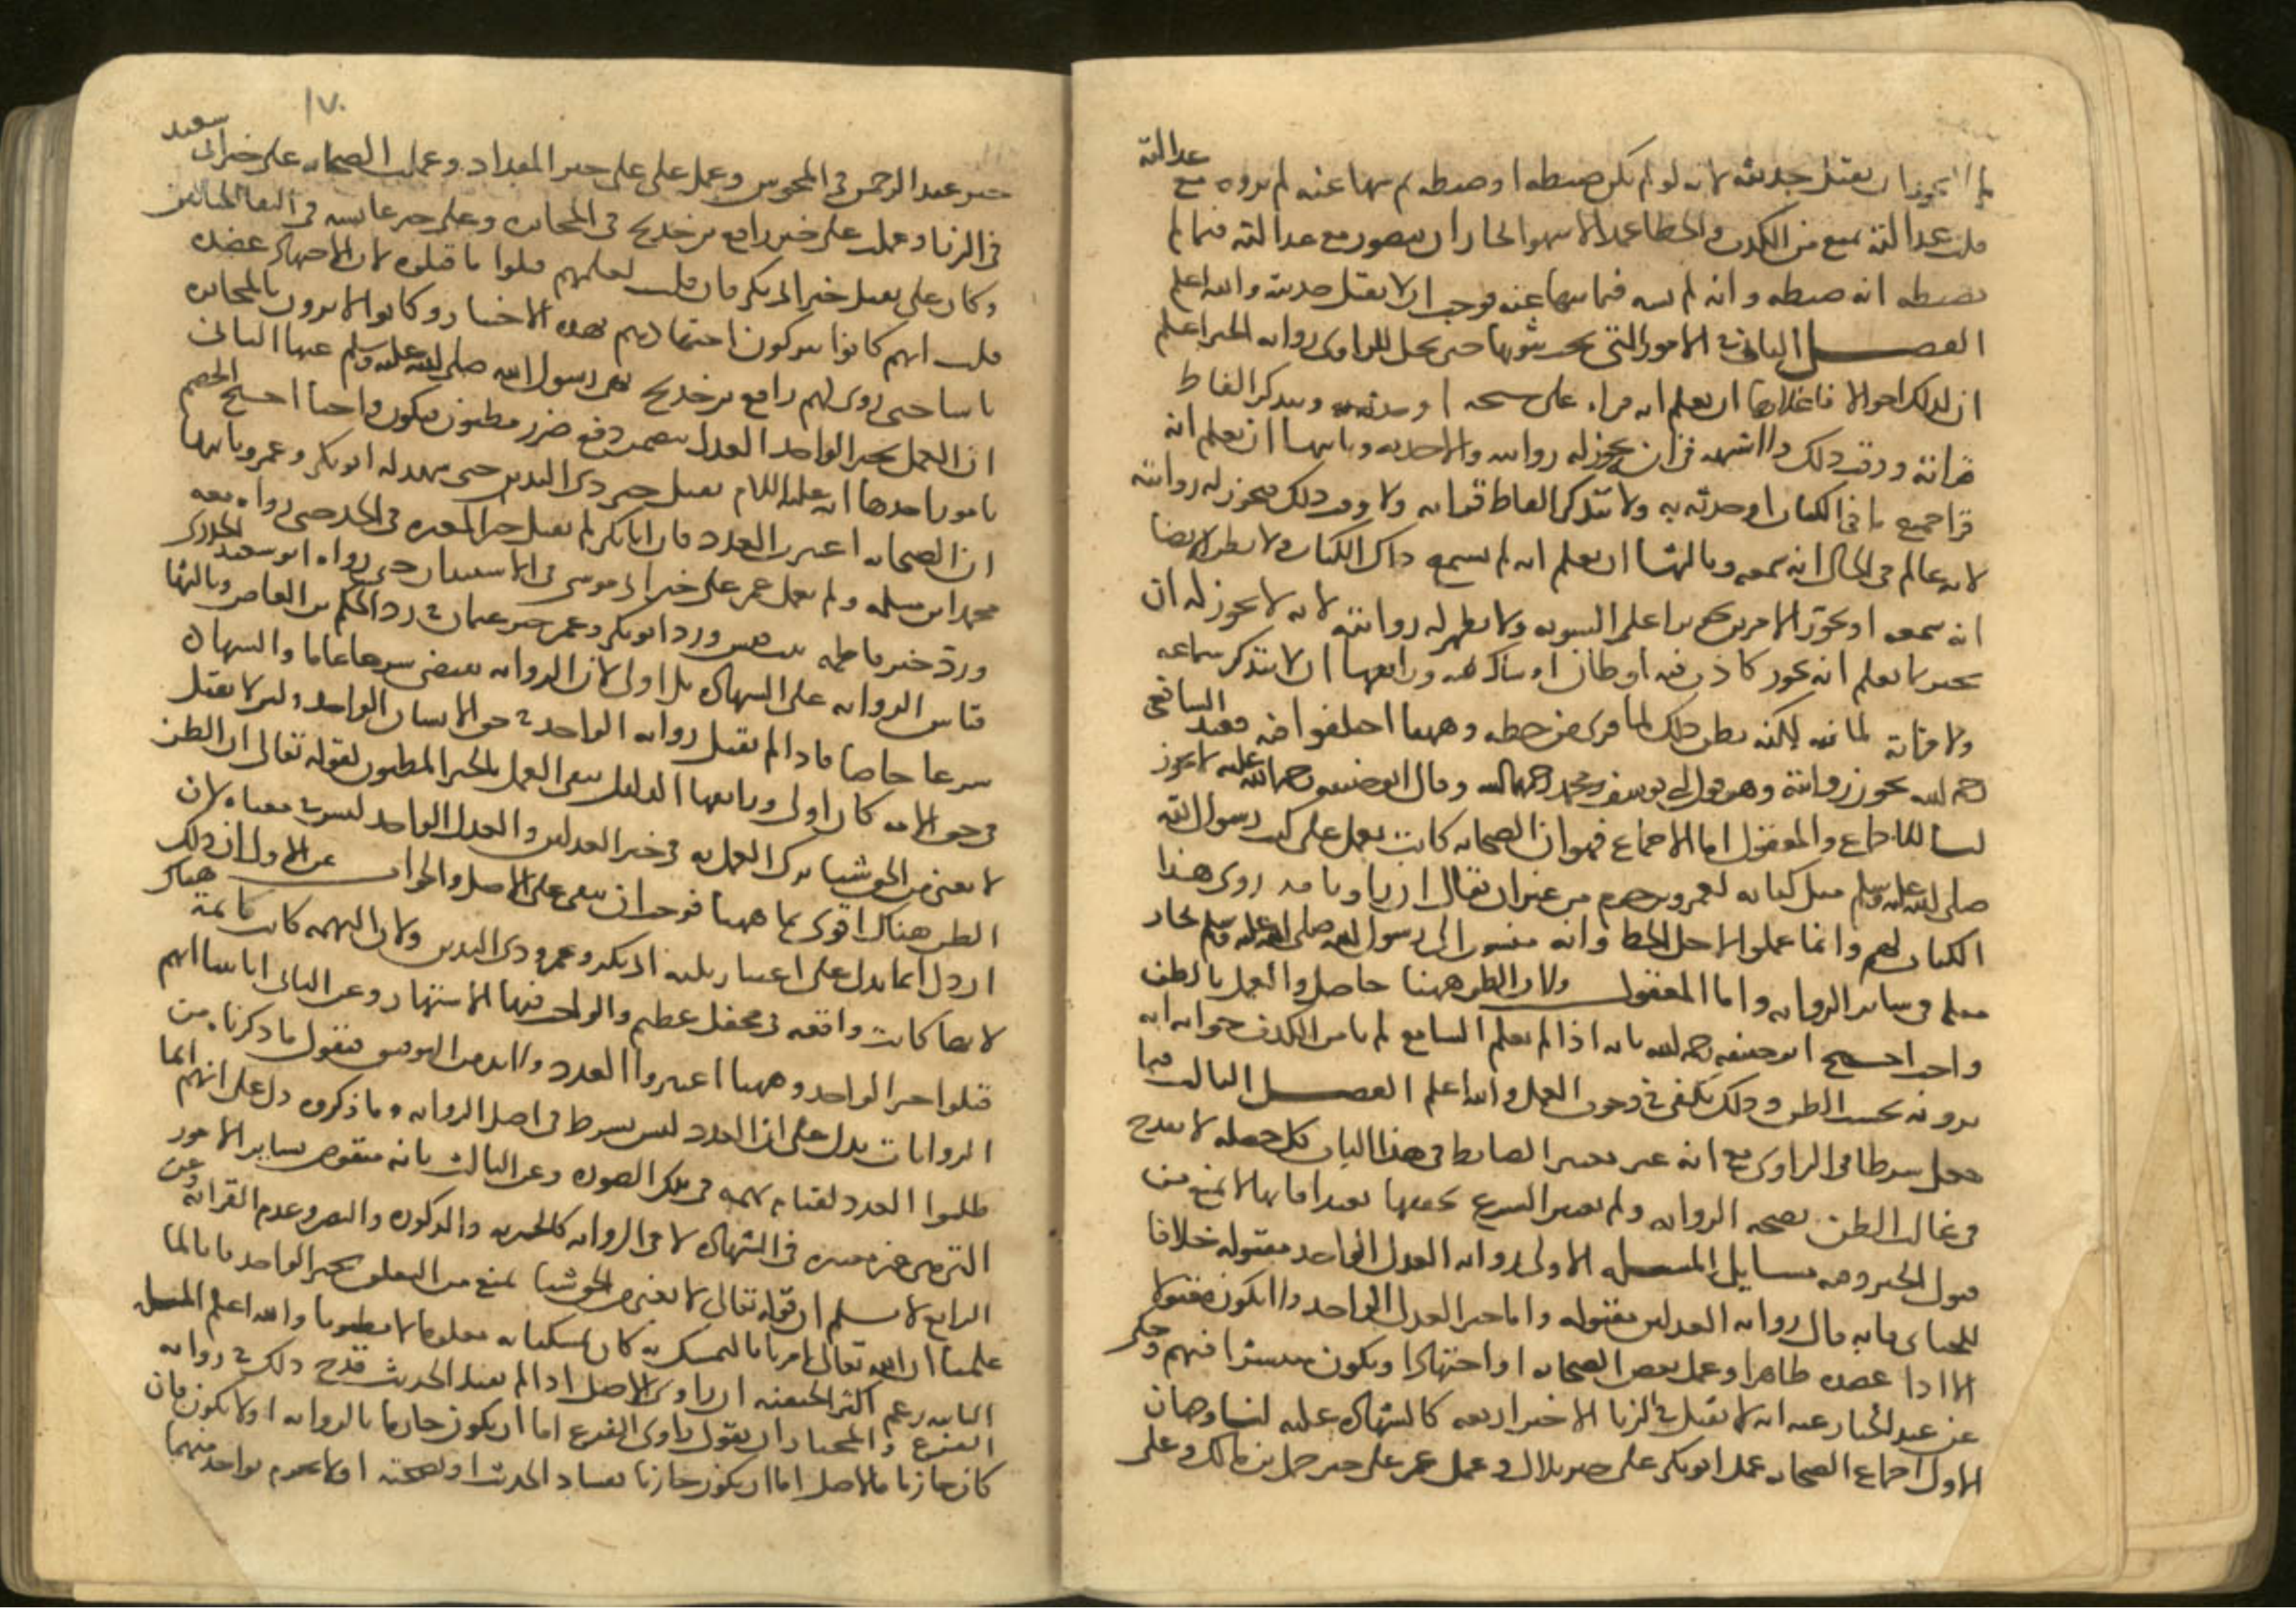 يجوز ان يقبل حديثه لانه لو لم يكن ضبطه او ضبطه ثم سها عنه لم يروه مع عدالته
قلت عدالته تمنع من الكذب والخطا عمدا لا سهوا لجاز ان يتصور مع عدالته فيما لم
يضبطه انه ضبطه وانه لم يسه فيما سها عنه فوجب ان لا يقبل حديثه والله اعلم
الفصل الثاني في الامور التي يجب ثبوتها حتى يحل للراوي رواية الخبر اعلم
ان لذلك احوالا فاعلاها ان يعلم انه قراه على شيخه او حدثه به ويتذكر الفاظ
قراته ووقت ذلك ولا شبهه في انه يجوز له روايته والاخذ به وثانيها ان يعلم انه
قرا جميع ما في الكتاب او حدثه به ولا يتذكر الفاظ قراته ولا وقت ذلك فيجوز له روايته
لانه عالم في الحال انه سمعه وثالثها ان يعلم انه لم يسمع ذاك الكتاب ولا يظن ايضا
انه سمعه او يجوز الامرين تجويزا على السويه ولا يظهر له روايته لانه لا يجوز له ان
يخبر بما يعلم انه يكون كاذبا فيه او ظانا او شاكا فيه ورابعها ان لا يتذكر سماعه
ولا قراته لما فيه لكنه يظن ذلك لما يرى من خطه وههنا اختلفوا فيه فعند الشافعي
رحمه الله يجوز روايته وهو قول ابي يوسف ومحمد رحمهما الله وقال ابو حنيفه رحمة الله عليه لا يجوز
لنا الاجماع والمعقول اما الاجماع فهو ان الصحابه كانت تعمل على كتب رسول الله
صلى الله عليه وسلم مثل كتابه لعمرو بن حزم من غير ان يقال ان راويا قد روى هذا
الكتاب لهم وانما عملوا لاجل الخط وانه منسوب الى رسول الله صلى الله عليه وسلم فجاز
مثله في سائر الروايه واما المعقول ولان الظن ههنا حاصل والعمل بالظن
واجب احتج ابو حنيفه رحمه الله بانه اذا لم يعلم السامع لم يامن الكذب جوابه انه
يرويه بحسب الظن وذلك يكفي في وجوب العمل والله اعلم الفصل الثالث فيما
جعل شرطا في الراوي مع انه غير معتبر الضابط في هذا الباب كل خصله لا تقدح
في غالب الظن بصحة الروايه ولم يعتبر الشرع تحققها تعبدا فانها لا تمنع من
قبول الخبر وفيه مسايل المسله الاولى روايه العدل الواحد مقبوله خلافا
للجبائي فانه قال روايه العدلين مقبوله واما خبر العدل الواحد فلا يكون مقبولا
الا اذا عضده ظاهر او عمل بعض الصحابه او اجتهاد او يكون منتشرا فيهم وحكى
عن عبد الجبار عنه انه لا يقبل في الزنا الا خبر اربعه كالشهاده عليه لنا وجهان
الاول اجماع الصحابه عمل ابو بكر على خبر بلال وعمل عمر على خبر حمل بن مالك وعلى
١٧٠
خبر عبد الرحمن في المجوس وعمل علي على خبر المقداد وعملت الصحابه على خبر ابي سعيد
في الربا وعملت على خبر رافع بن خديج في المخابره وعلى خبر عايشه في التقا الختانين
وكان علي يقبل خبر ابي بكر فان قلت لعلهم قبلوا ما قبلوه لان الاجتهاد عضده
قلت انهم كانوا يتركون اجتهادهم بهذه الاخبار وكانوا لا يرون بالمخابره
باسا حتى روى لهم رافع بن خديج نهي رسول الله صلى الله عليه وسلم عنها الثاني
ان العمل بخبر الواحد العدل يتضمن دفع ضرر مظنون فيكون واجبا احتج الخصم
بامور احدها انه عليه السلام لم يقبل خبر ذي اليدين حتى شهد له ابو بكر وعمر وثانيها
ان الصحابه اعتبرت العدد فان ابا بكر لم يقبل خبر المغيره في الجده حتى رواه معه
محمد ابن مسلمه ولم يعمل عمر على خبر ابي موسى في الاستيذان حتى رواه ابو سعيد الخدري
ورد خبر فاطمه بنت قيس ورد ابو بكر وعمر خبر عثمان في رد الحكم بن العاص وثالثها
قياس الروايه على الشهاده بل اولى لان الروايه تقتضي شرعا عاما والشهاده
شرعا خاصا فاذا لم تقبل روايه الواحد في حق الانسان الواحد فلئن لا تقبل
في حق الامه كان اولى ورابعها الدليل ينفي العمل بالخبر المظنون لقوله تعالى ان الظن
لا يغني من الحق شيا ترك العمل به في خبر العدلين والعدل الواحد ليس في معناه لان
الظن هناك اقوى مما ههنا فوجب ان يبقى على الاصل والجواب عن الاول ان ذلك
ان دل انما يدل على اعتبار ثلثه ابي بكر وعمر وذي اليدين ولان التهمه كانت قائمة هناك
لانها كانت واقعه في محفل عظيم والواجب فيها الاشتهار وعن الثاني انا بينا انهم
قبلوا خبر الواحد وههنا اعتبروا العدد ولا بد من التوفيق فنقول ما ذكرناه من
الروايات يدل على ان العدد ليس بشرط في اصل الروايه وما ذكروه دل على انهم انما
طلبوا العدد لقيام تهمه في تلك الصوره وعن الثالث بانه منقوض بساير الامور
التي هي غير معتبره في الشهاده لا في الروايه كالحريه والذكوره والبصر وعدم القرابه وعن
الرابع لا نسلم ان قوله تعالى لا يغني من الحق شيا يمنع من التعلق بخبر الواحد فانا لما
علمنا ان الله تعالى امرنا بالتمسك به كان تمسكنا به معلوما لا مظنونا والله اعلم المسله
الثانيه زعم اكثر الحنفيه ان راوي الاصل اذا لم يقبل الحديث قدح ذلك في روايه
الفرع والمختار ان يقول راوي الفرع اما ان يكون جازما بالروايه او لا يكون فان
كان جازما فالاصل اما ان يكون جازما بفساد الحديث او بصحته او لا يجزم بواحد منهما